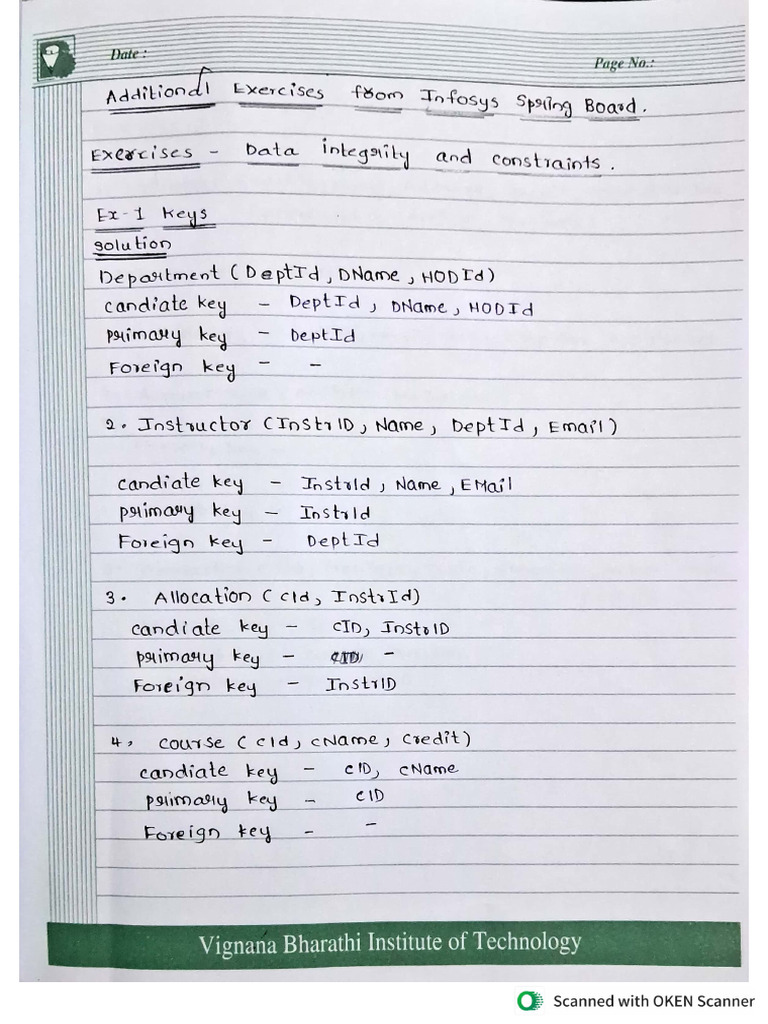 Date :
Page No.:
Additional Exercises from Infosys Spring Board.
Exercises - Data integrity and constraints.
Ex-1 keys
solution
Department (DeptId, DName, HODId)
candiate key - DeptId, DName, HODId
primary key - DeptId
Foreign key - -
2. Instructor (InstrID, Name, DeptId, Email)
candiate key - InstrId, Name, EMail
primary key - InstrId
Foreign key - DeptId
3. Allocation (cId, InstrId)
candiate key - cID, InstrID
primary key - -
Foreign key - InstrID
4, course (cId, cName, Credit)
candiate key - cID, cName
primary key - cID
Foreign key - -
Vignana Bharathi Institute of Technology
Scanned with OKEN Scanner